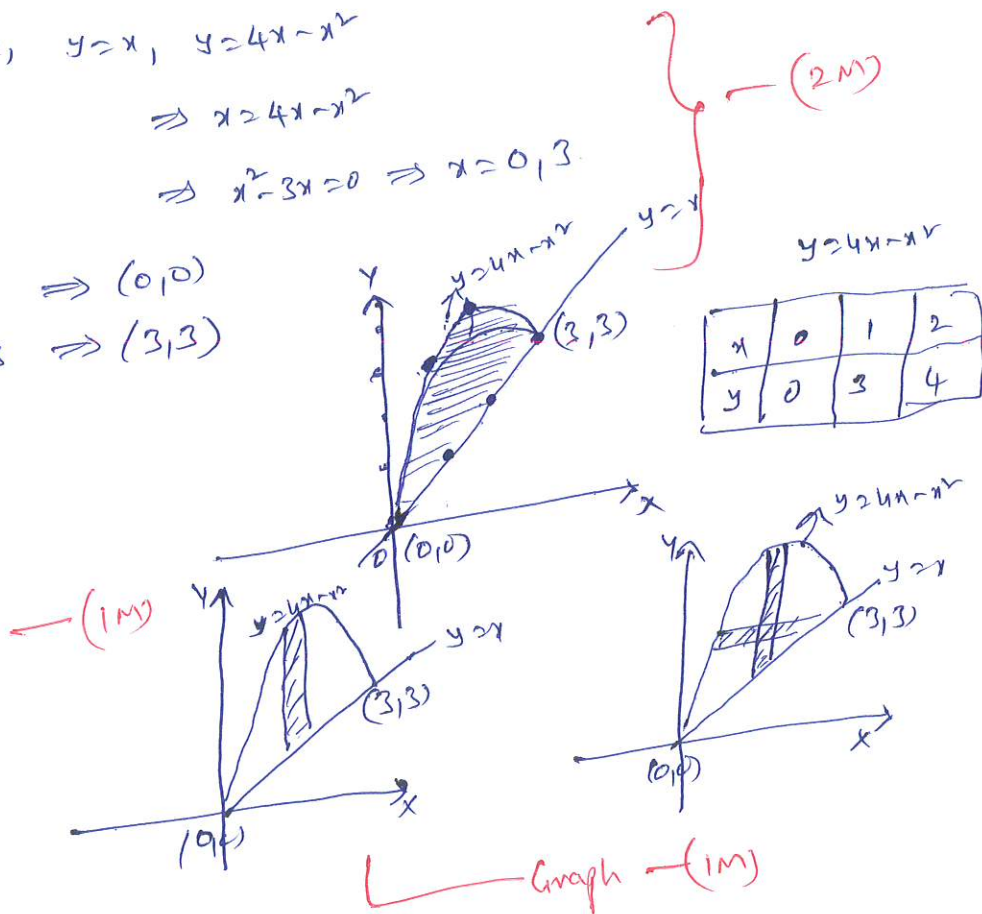 , y=x, y=4x-x²
⇒ x=4x-x²
⇒ x²-3x=0 ⇒ x=0,3
(2M)
⇒ (0,0)
⇒ (3,3)
Y
y=4x-x²
y=x
(3,3)
X
0 (0,0)
y=4x-x²
x 0 1 2
y 0 3 4
(1M)
Y
y=4x-x²
y=x
(3,3)
X
Y
y=4x-x²
y=x
(3,3)
X
(0,0)
Graph (1M)